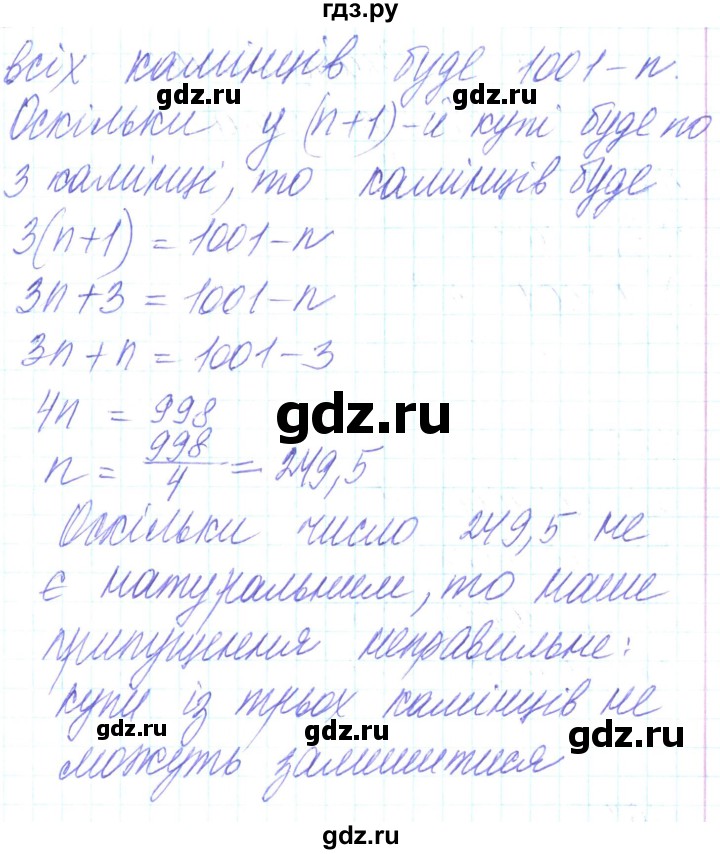 гдз.ру
всіх камінців буде 1001-n.
gdz.ru gdz.ru
Оскільки у (n+1)-й купі буде по
3 камінці, то камінців буде
3(n+1) = 1001-n
3n+3 = 1001-n
3n+n = 1001-3
4n = 998
gdz.ru
n = 998/4 = 249,5
Оскільки число 249,5 не
є натуральним, то наше
припущення неправильне:
купи із трьох камінців не
gdz.ru gdz.ru
можуть залишитися
gdz.ru